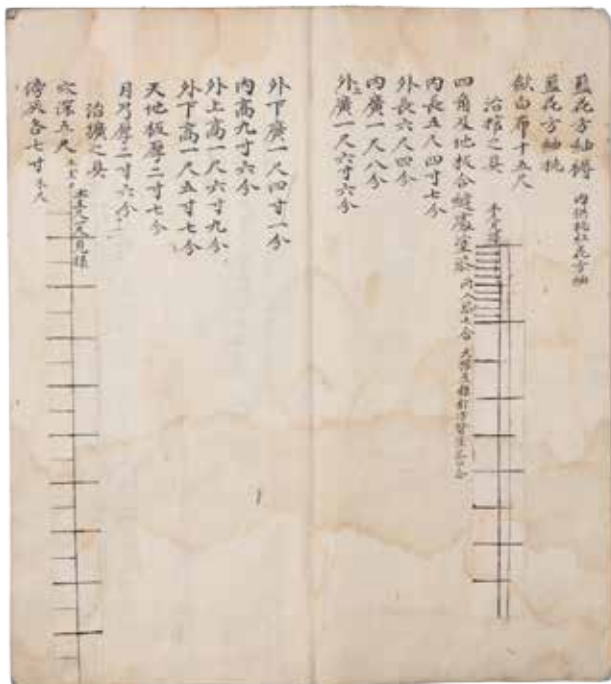 藍花方紬褥 內拱桃紅花方紬
藍花方紬枕
斂白布十五尺
治棺之具
四角及地板合縫處塗漆
內長五尺四寸七分
外長六尺四分
內廣一尺八分
外上廣一尺六寸六分
外下廣一尺四寸一分
內高九寸六分
外上高一尺六寸九分
外下高一尺五寸七分
天地板厚二寸七分
月乃厚二寸六分
治壙之具
穴深五尺
傍灰各七寸 木尺